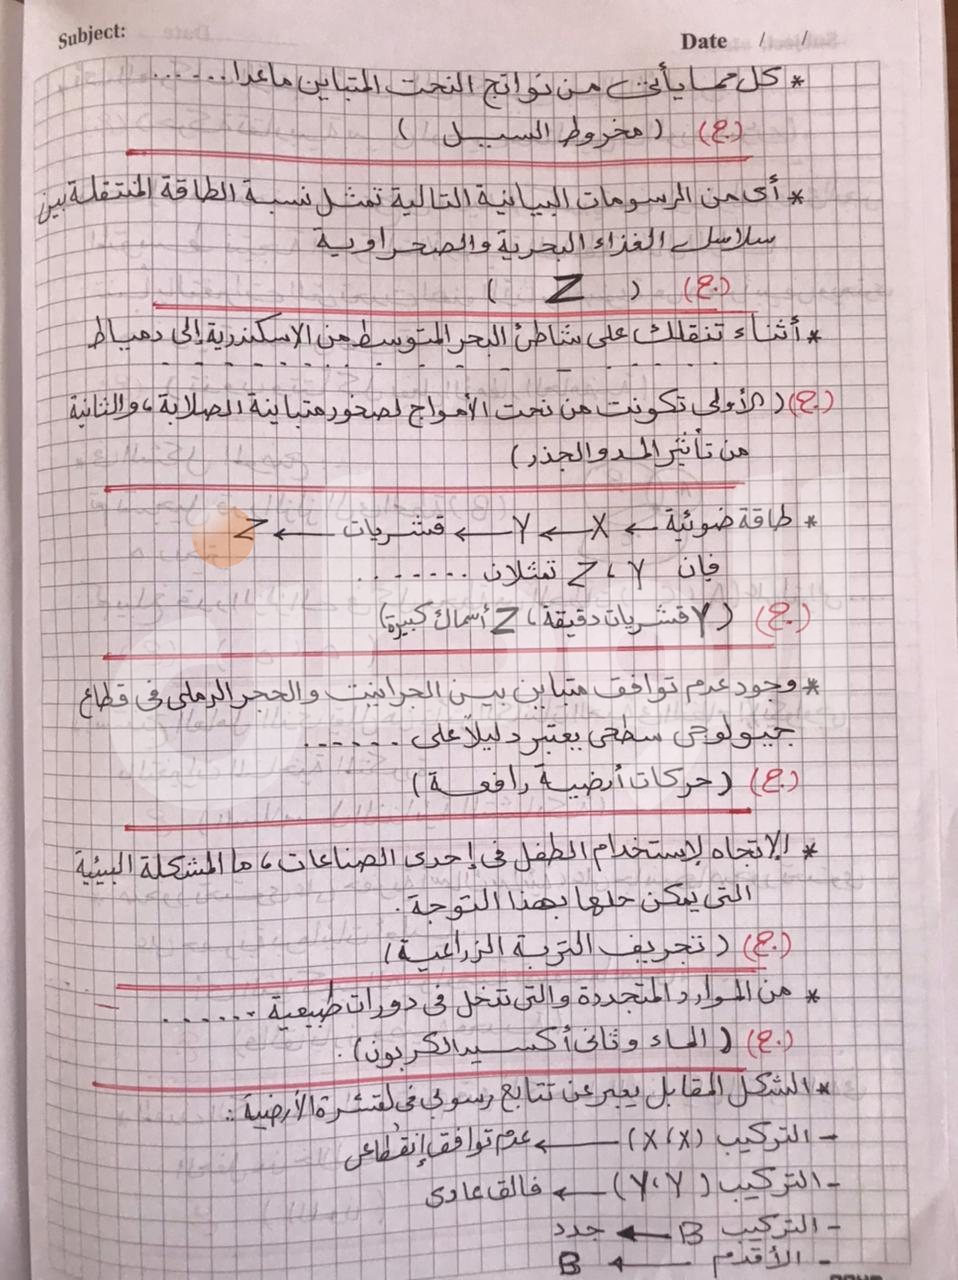 Subject:
Date / /
* كل مما يأتى من نواتج النحت المتباين ماعدا......
(ج) ( مخروط السيل )
* أى من الرسومات البيانية التالية تمثل نسبة الطاقة المنتقلة بين
سلاسل الغذاء البحرية والصحراوية
(ج) ( Z )
* أثناء تنقلك على شاطئ البحر المتوسط من الاسكندرية إلى دمياط
(ج) ( الأولى تكونت من نحت الأمواج لصخور متباينة الصلابة، والثانية
من تأثير المد والجذر)
* طاقة ضوئية ← X ← Y ← قشريات ← Z
فإن Z ، Y تمثلان .......
(ج) ( Y قشريات دقيقة، Z أسماك كبيرة)
* وجود عدم توافق متباين بين الجرانيت والحجر الرملى فى قطاع
جيولوجى سطحى يعتبر دليلاً على ......
(ج) ( حركات أرضية رافعة )
* الإتجاه لإستخدام الطفل فى إحدى الصناعات، ما المشكلة البيئية
التى يمكن حلها بهذا التوجة.
(ج) ( تجريف التربة الزراعية )
* من الموارد المتجددة والتى تتخل فى دورات طبيعية ......
(ج) ( الماء وثانى أكسيد الكربون ) .
* الشكل المقابل يعبر عن تتابع رسوبي فى لقشرة الأرضية :
- التركيب (X،X) ← عدم توافق إنقطاعى
- التركيب (Y،Y) ← فالق عادى
- التركيب B ← جدد
- الأقدم ← B